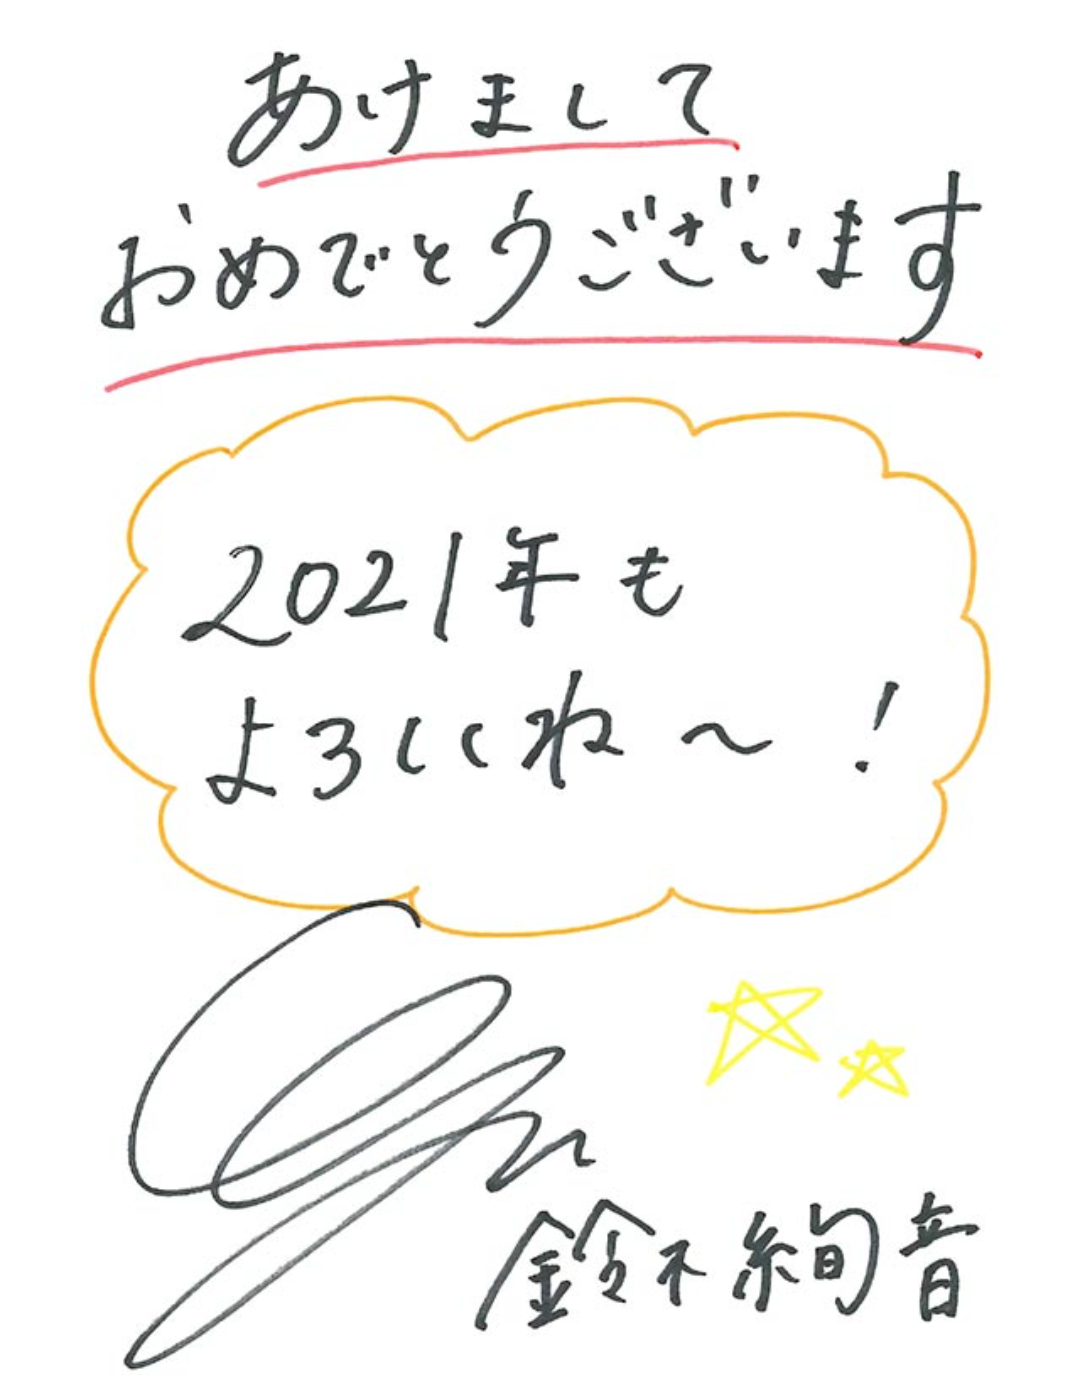 あけまして
おめでとうございます
2021年も
よろしくね～！
鈴木絢音